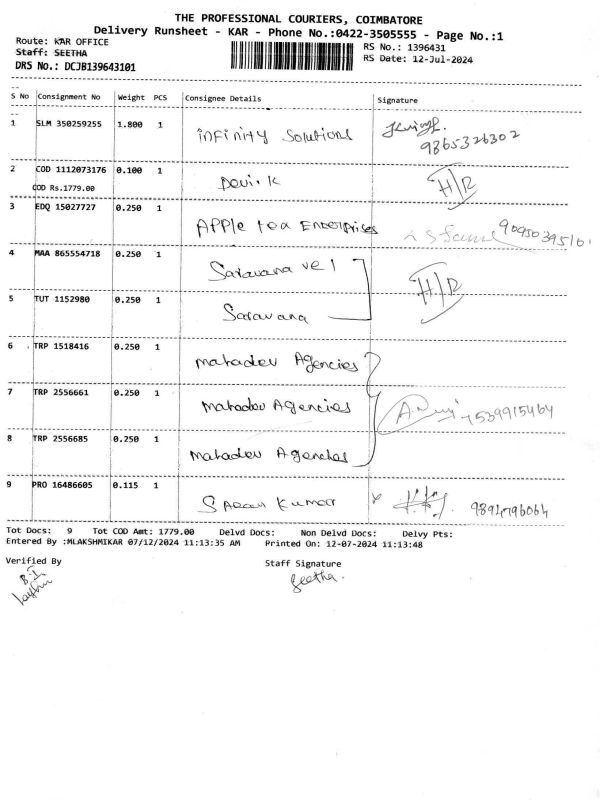 THE PROFESSIONAL COURIERS, COIMBATORE
Delivery Runsheet - KAR - Phone No.:0422-3505555 - Page No.:1
Route: KAR OFFICE
Staff: SEETHA
DRS No.: DCJB139643101
RS No.: 1396431
RS Date: 12-Jul-2024
S No Consignment No Weight PCS Consignee Details Signature
1 SLM 350259255 1.800 1 infinity Solutions
9865326302
2 COD 1112073176 0.100 1 Devi.k H/R
COD Rs.1779.00
3 EDQ 15027727 0.250 1 Apple tea Enterprises
4 MAA 865554718 0.250 1 Saravana vel H/R
5 TUT 1152980 0.250 1 Saravana
6 TRP 1518416 0.250 1 mahadev Agencies
7 TRP 2556661 0.250 1 mahadev Agencies 7539915464
8 TRP 2556685 0.250 1 mahadev Agencies
9 PRO 16486605 0.115 1 Saran Kumar
Tot Docs: 9 Tot COD Amt: 1779.00 Delvd Docs: Non Delvd Docs: Delvy Pts:
Entered By :MLAKSHMIKAR 07/12/2024 11:13:35 AM Printed On: 12-07-2024 11:13:48
Verified By Staff Signature
Seetha.